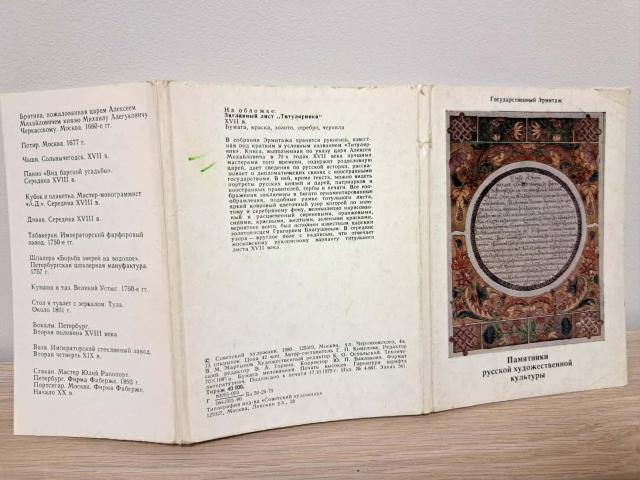 Братина, пожалованная царем Алексеем
Михайловичем князю Михаилу Алегуковичу
Черкасскому. Москва. 1660-е гг.
Потир. Москва. 1677 г.
Чаши. Сольвычегодск. XVII в.
Панно «Вид барской усадьбы».
Середина XVIII в.
Кубок и плакетка. Мастер-монограммист
«А.Д». Середина XVIII в.
Диван. Середина XVIII в.
Табакерки. Императорский фарфоровый
завод. 1750-е гг.
Шпалера «Борьба зверей на водопое».
Петербургская шпалерная мануфактура.
1757 г.
Кувшин и таз. Великий Устюг. 1760-е гг.
Стол и туалет с зеркалом. Тула.
Около 1801 г.
Бокалы. Петербург.
Вторая половина XVIII века
Ваза. Императорский стеклянный завод.
Вторая четверть XIX в.
Стакан. Мастер Юлий Раппопорт.
Петербург. Фирма Фаберже. 1893 г.
Портсигар. Москва. Фирма Фаберже.
Начало XX в.
На обложке:
Заглавный лист „Титулярника“
XVII в.
Бумага, краска, золото, серебро, чернила
В собрании Эрмитажа хранится рукопись, извест-
ная под кратким и условным названием «Титуляр-
ник». Книга, выполненная по указу царя Алексея
Михайловича в 70-х годах XVII века лучшими
мастерами того времени, содержит родословную
царей, дает сведения по русской истории, расска-
зывает о дипломатических связях с иностранными
государствами. В ней, кроме текста, можно видеть
портреты русских князей и царей, патриархов и
иностранных правителей, гербы и печати. Все изо-
бражения заключены в богато орнаментированные
обрамления, подобные рамке титульного листа,
яркий ковровый цветочный узор которой по золо-
тому и серебряному фону, великолепно нарисован-
ный и расцвеченный сиреневыми, оранжевыми,
синими, красными, желтыми, зелеными красками,
вероятнее всего, был исполнен известным царским
золотописцем Григорием Благушиным. В середине
узора — круглое поле с надписью, что отвечает
московскому рукописному варианту титульного
листа XVII века.
© Советский художник. 1980. 125319, Москва, ул. Черняховского, 4а.
В. М. Мартынов. Художественный редактор К. О. Остольский. Техниче-
ский редактор В. А. Горина. Корректор Ю. П. Баклакова. Формат
Тираж 40 000.
Типография изд-ва «Советский художник».
Государственный Эрмитаж
Памятники
русской художественной
культуры